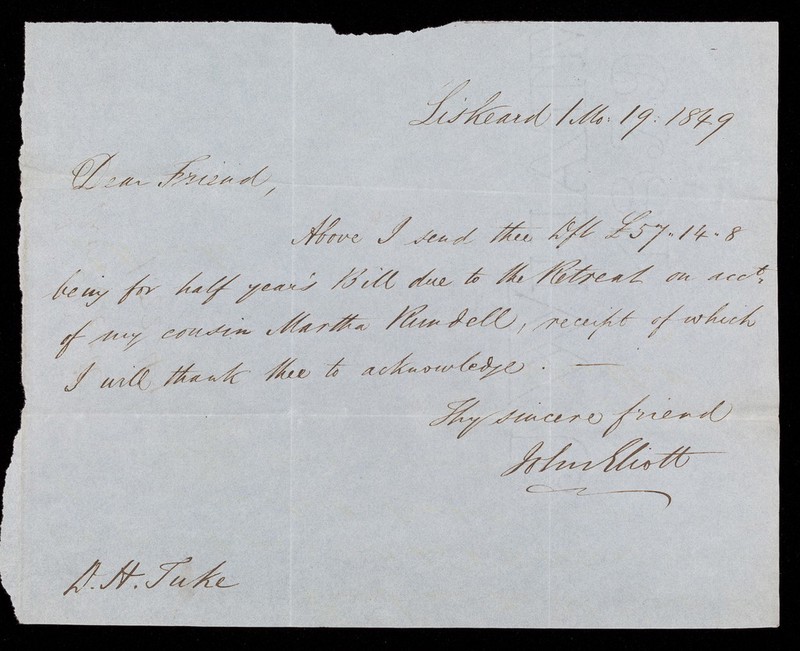 Liskeard 1 Mo: 19: 1849
Dear Friend,
Above I send thee Dft £57..14..8
being for half year's Bill due to the Retreat on acct.
of my cousin Martha Rundell, receipt of which
I will thank thee to acknowledge. —
Thy sincere friend
John Eliott
D. H. Tuke